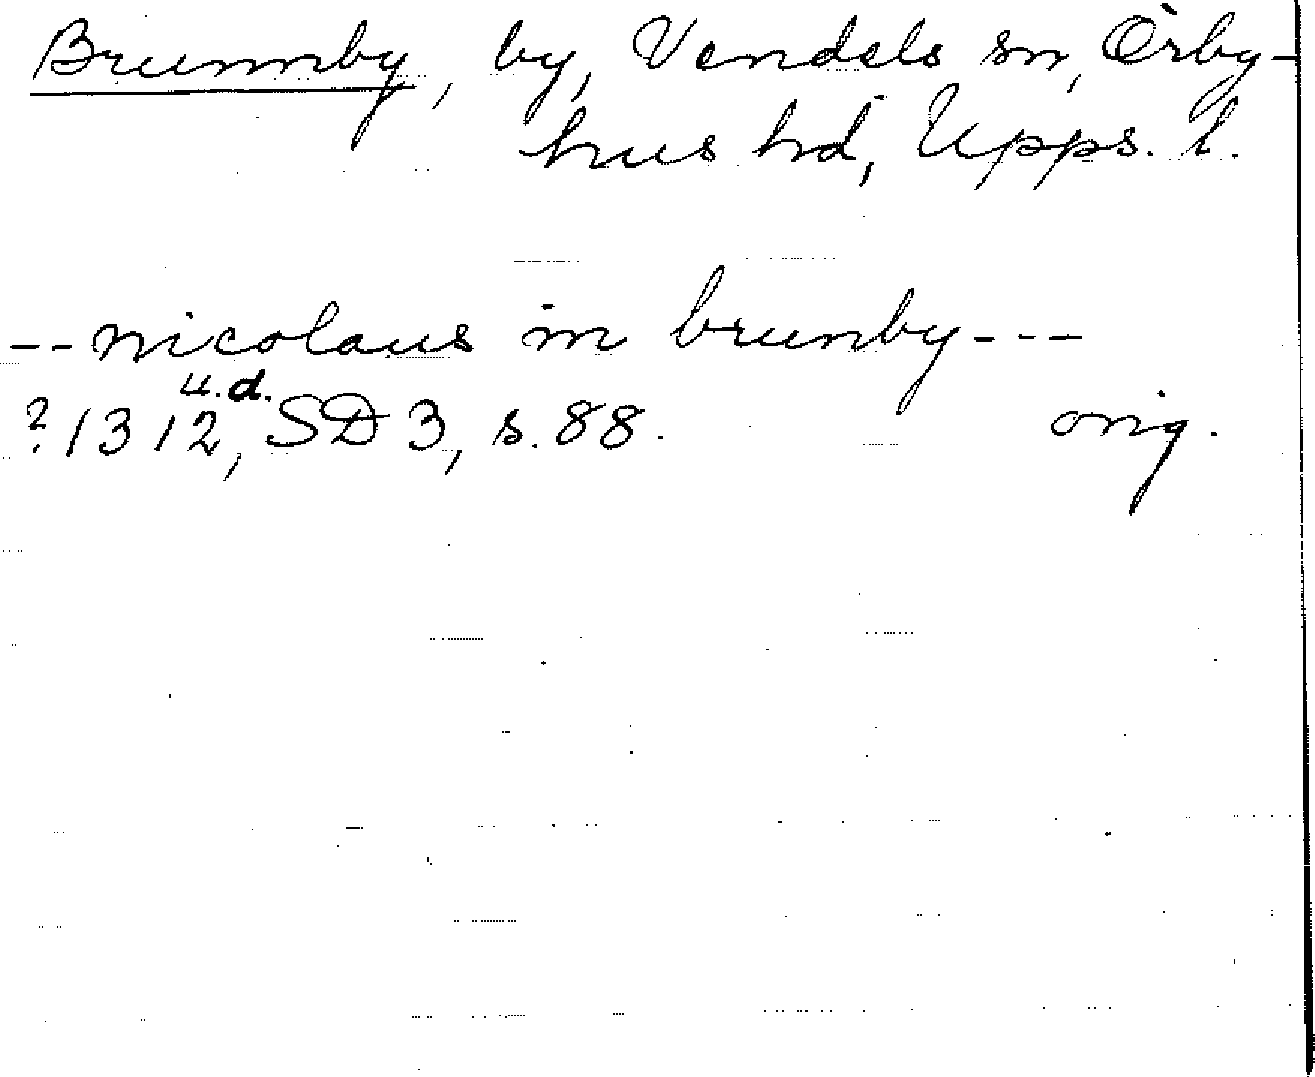 Brunnby, by, Vendels sn, Örby-
hus hd, Upps. l.
-- nicolaus in brunby ---
u.d.
? 1312, SD 3, s. 88. orig.